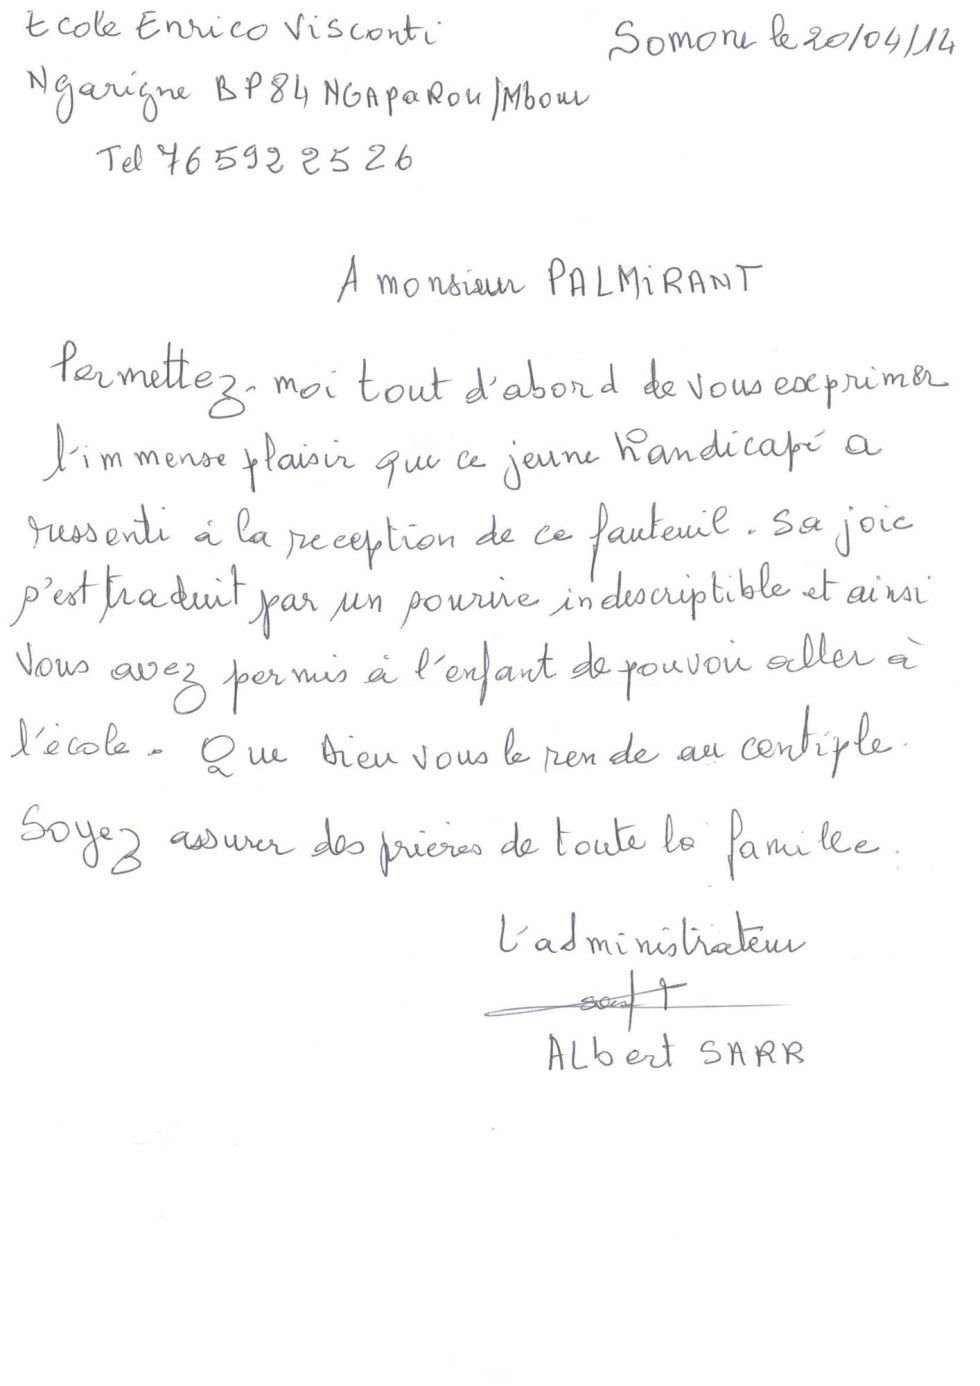 Ecole Enrico Visconti
Somone le 20/04/14
Ngarigne BP84 NGAPAROU/Mbour
Tel 76 592 25 26
A monsieur PALMIRANT
Permettez-moi tout d'abord de vous exprimer
l'immense plaisir que ce jeune handicapé a
ressenti à la reception de ce fauteuil. Sa joie
s'est traduit par un sourire indescriptible et ainsi
Vous avez permis à l'enfant de pouvoir aller à
l'école. Que Dieu vous le rende au centiple.
Soyez assurer des prières de toute la famille.
L'administrateur
ALbert SARR